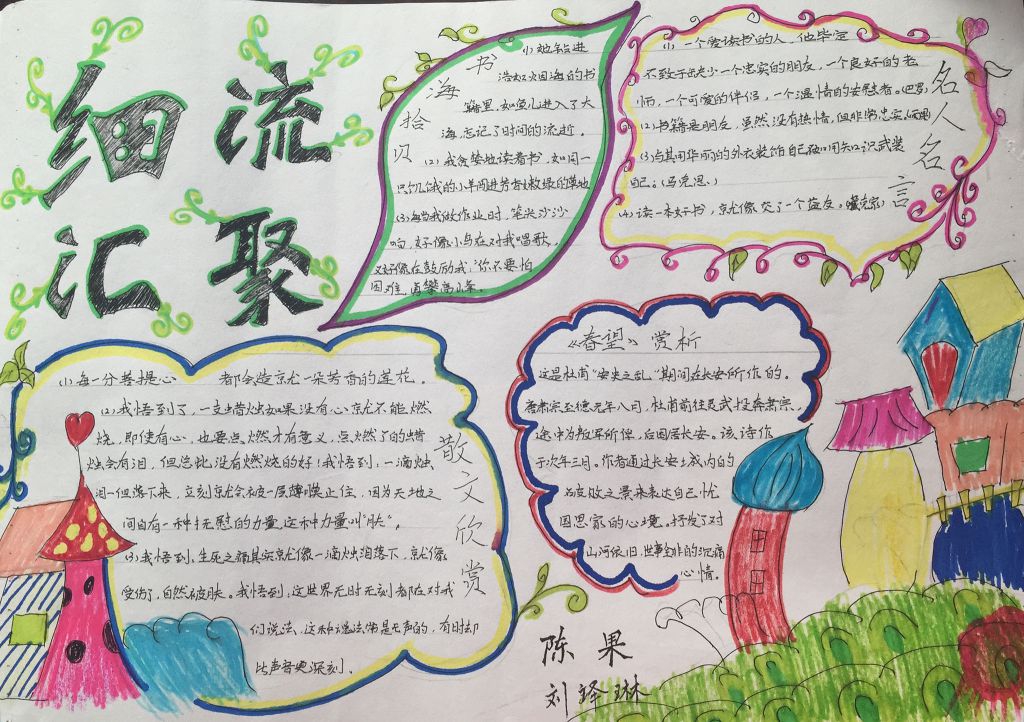 细流
汇聚
书海拾贝
(1) 她钻进
浩如烟海的书
籍里,如鱼儿进入了大
海,忘记了时间的流逝。
(2) 我贪婪地读着书,如同一
只饥饿的小羊闯进芳草嫩绿的草地
(3) 每当我做作业时,笔尖沙沙
响,好像小鸟在对我唱歌,
又好像在鼓励我:“你不要怕
困难,勇攀高峰。
名人名言
(1) 一个爱读书的人,他毕定
不致于缺少一个忠实的朋友,一个良好的老
师,一个可爱的伴侣,一个温情的安慰者。(巴罗)
(2) 书籍是朋友,虽然没有热情,但非常忠实。(雨果)
(3) 与其用华丽的外衣装饰自己,不如用知识武装
自己。(马克思)
(4) 读一本好书,就像交了一个益友。(臧克家)
散文欣赏
(1) 每一分菩提心 都会造就一朵芳香的莲花。
(2) 我悟到了,一支蜡烛如果没有心就不能燃
烧,即使有心,也要点燃才有意义,点燃了的蜡
烛会有泪,但总比没有燃烧的好!我悟到:一滴烛
泪一但落下来,立刻就会被一层薄膜止住,因为天地之
间自有一种抚慰的力量,这种力量叫“肤”。
(3) 我悟到,生死之痛其实就像一滴烛泪落下,就像
受伤了,自然被肤。我悟到:这世界无时无刻都在对我
们说法,这种说法常是无声的,有时却
比声音更深刻。
《春望》赏析
这是杜甫“安史之乱”期间在长安所作的。
唐肃宗至德元年八月,杜甫前往灵武投奔肃宗,
途中为叛军所俘,后困居长安。该诗作
于次年三月。作者通过长安城内的
破败之景来表达自己忧
国思家的心境。抒发了对
山河依旧,世事全非的沉痛
心情。
陈果
刘铎琳